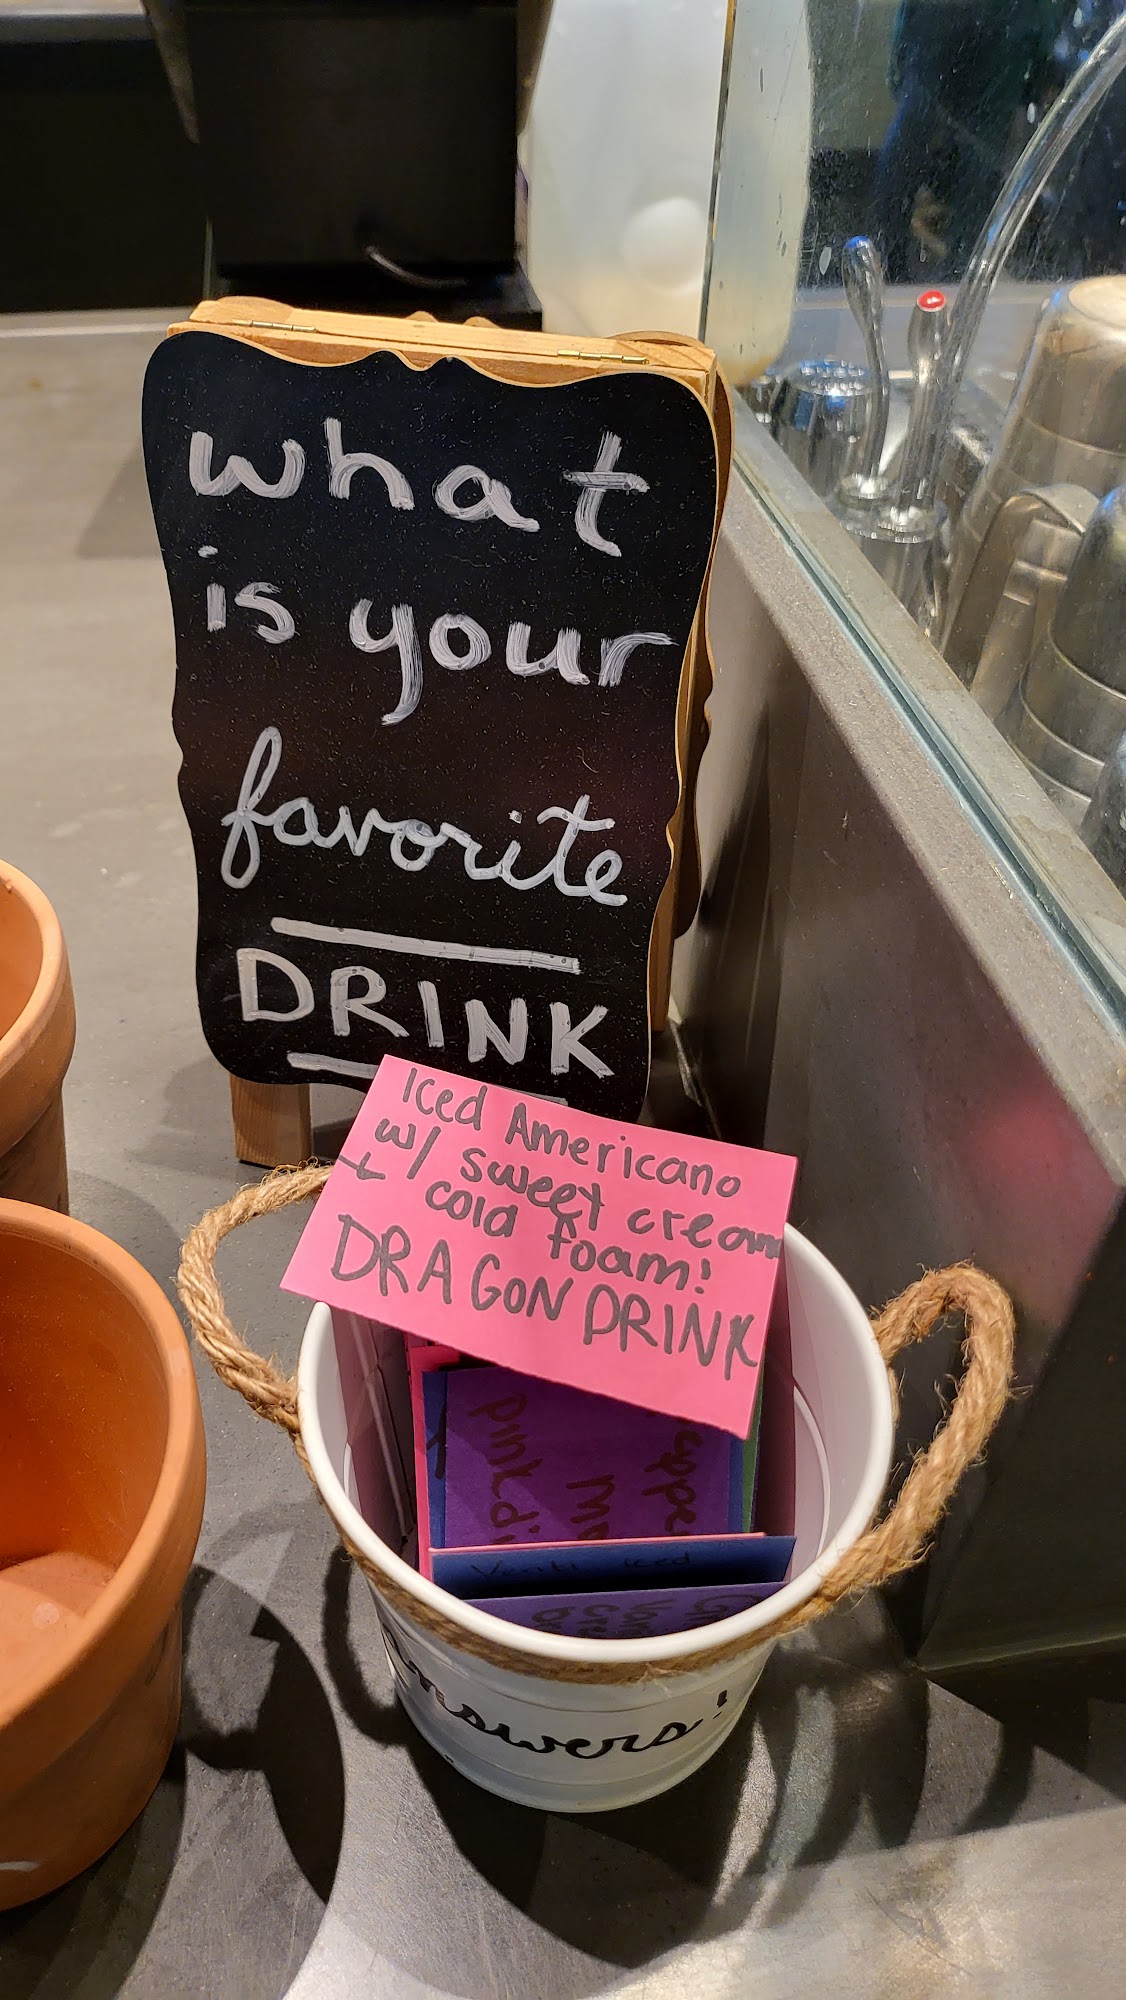 what
is your
favorite
DRINK
Iced Americano
w/ sweet cream
+ cold foam!
DRAGON DRINK
pink
Venti iced
Answers!